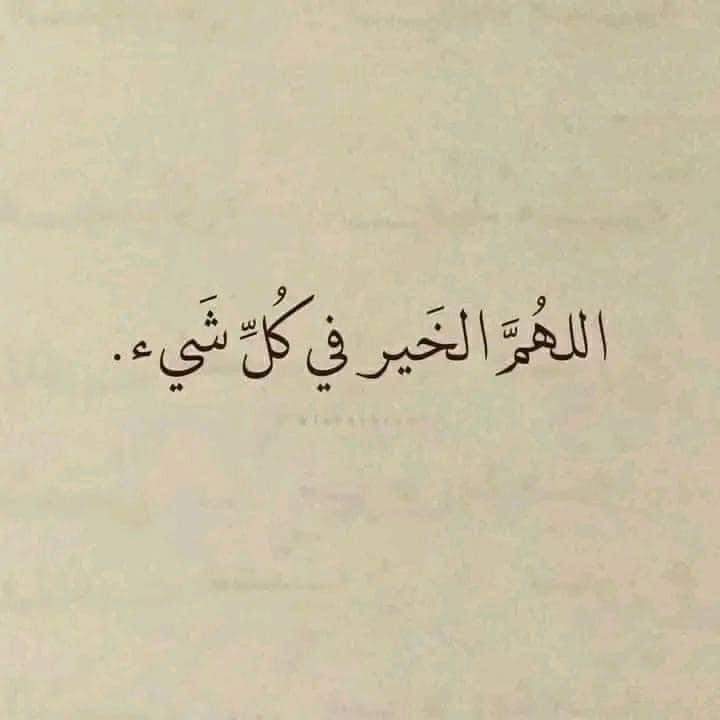 اللهُمَّ الخَير في كُلِّ شَيء.